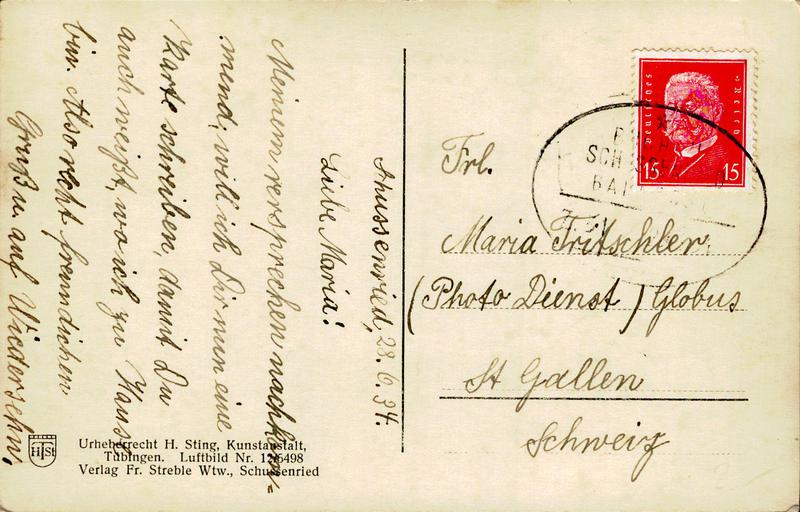 Schussenried, 28.6.34.
Liebe Maria!
Meinem versprechen nachkom-
mend, will ich Dir nun eine
Karte schreiben, damit Du
auch weißt, wo ich zu Hause
bin. Also recht freundlichen
Gruß u. auf Wiedersehn,
Frl.
Maria Fritschler,
(Photo Dienst) Globus
St Gallen
Schweiz
Deutsches Reich
15 15
HStS
Urheberrecht H. Sting, Kunstanstalt,
Tübingen. Luftbild Nr. 12/5498
Verlag Fr. Streble Wtw., Schussenried